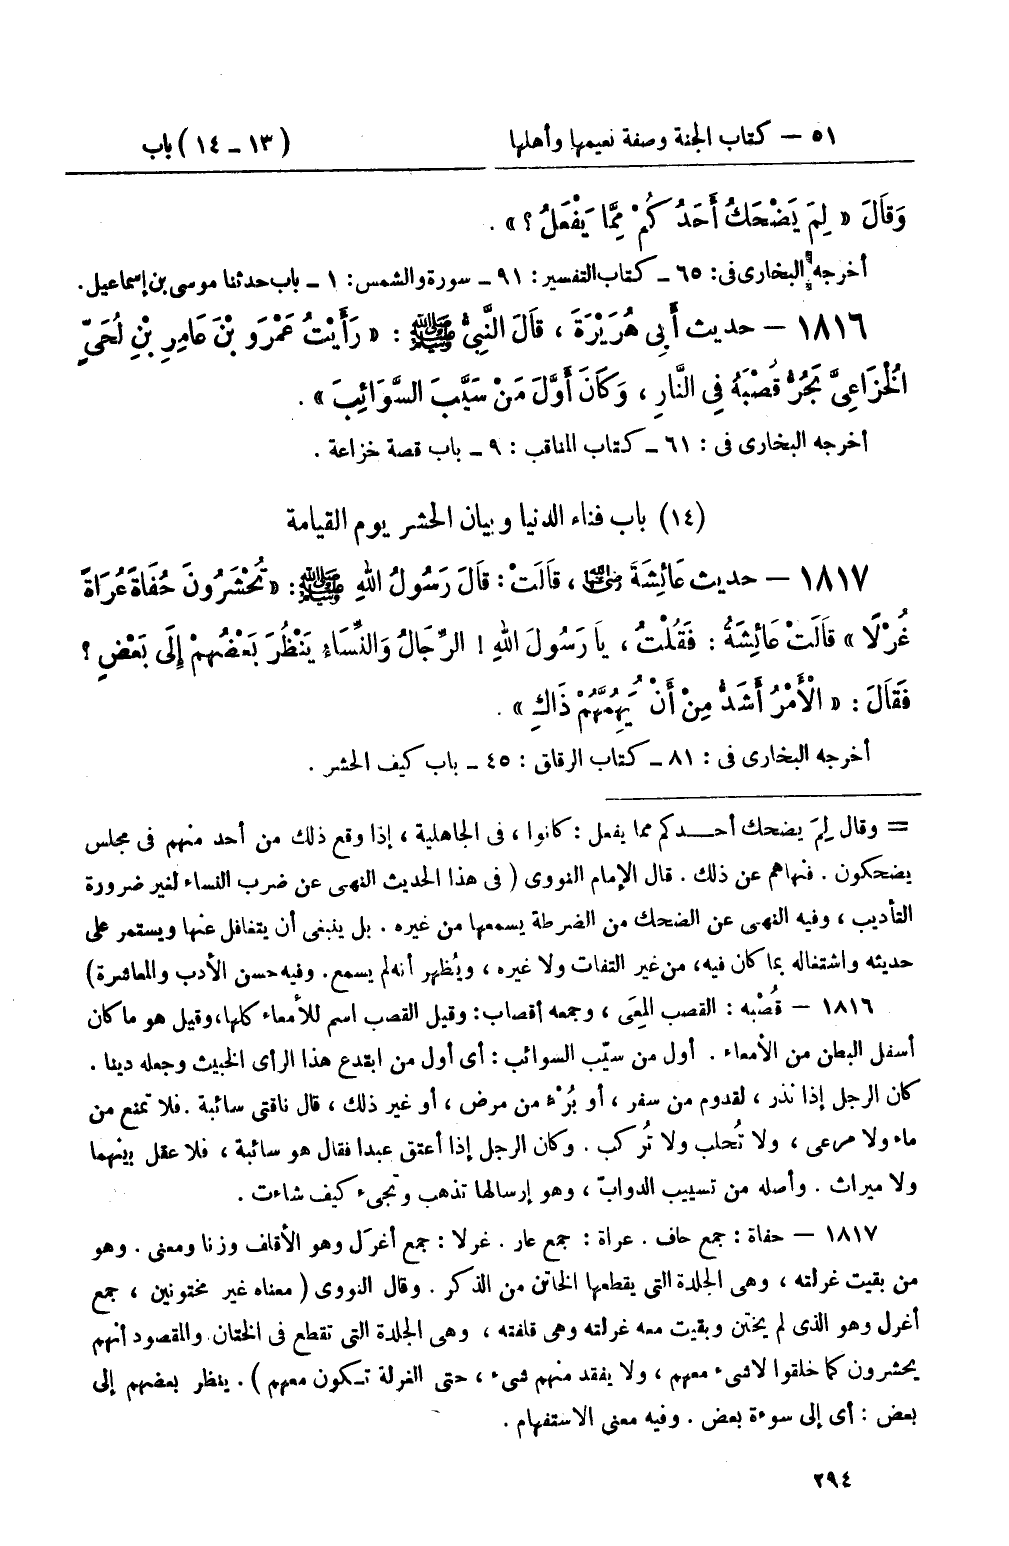 ٥١ – كتاب الجنة وصفة نعيمها وأهلها (١٣ – ١٤) باب
وَقَالَ « لِمَ يَضْحَكُ أَحَدُكُمْ مِمَّا يَفْعَلُ ؟ » .
أخرجه البخارى فى : ٦٥ – كتاب التفسير : ٩١ – سورة والشمس : ١ – باب حدثنا موسى بن إسماعيل .
١٨١٦ – حديث أَبِى هُرَيْرَةَ ، قَالَ النَّبِىُّ ﷺ : « رَأَيْتُ عَمْرَو بْنَ عَامِرِ بْنِ لُحَىٍّ
الْخُزَاعِىَّ يَجُرُّ قُصْبَهُ فِى النَّارِ ، وَكَانَ أَوَّلَ مَنْ سَيَّبَ السَّوَائِبَ » .
أخرجه البخارى فى : ٦١ – كتاب المناقب : ٩ – باب قصة خزاعة .
(١٤) باب فناء الدنيا وبيان الحشر يوم القيامة
١٨١٧ – حديث عَائِشَةَ رضي الله عنها ، قَالَتْ : قَالَ رَسُولُ اللهِ ﷺ : « تُحْشَرُونَ حُفَاةً عُرَاةً
غُرْلًا » قَالَتْ عَائِشَةُ : فَقُلْتُ ، يَا رَسُولَ اللهِ ! الرِّجَالُ وَالنِّسَاءُ يَنْظُرُ بَعْضُهمْ إِلَى بَعْضٍ ؟
فَقَالَ : « الْأَمْرُ أَشَدُّ مِنْ أَنْ يُهِمَّهُمْ ذَاكِ » .
أخرجه البخارى فى : ٨١ – كتاب الرقاق : ٤٥ – باب كيف الحشر .
= وقال لِمَ يضحك أحـــدكم مما يفعل : كانوا ، فى الجاهلية ، إذا وقع ذلك من أحد منهم فى مجلس
يضحكون . فنهاهم عن ذلك . قال الإمام النووى ( فى هذا الحديث النهى عن ضرب النساء لغير ضرورة
التأديب ، وفيه النهى عن الضحك من الضرطة يسمعها من غيره . بل ينبغى أن يتغافل عنها ويستمر على
حديثه واشتغاله بما كان فيه ، من غير التفات ولا غيره ، ويُظهر أنه لم يسمع . وفيه حسن الأدب والمعاشرة )
١٨١٦ – قُصْبه : القصب المِعَى ، وجمعه أقصاب : وقيل القصب اسم للأمعاء كلها ، وقيل هو ما كان
أسفل البطن من الأمعاء . أول من سيّب السوائب : أى أول من ابتدع هذا الرأى الخبيث وجعله دينا .
كان الرجل إذا نذر ، لقدوم من سفر ، أو بُرْء من مرض ، أو غير ذلك ، قال ناقتى سائبة . فلا تمنع من
ماء ولا مرعى ، ولا تُحلب ولا تُركب . وكان الرجل إذا أعتق عبدا فقال هو سائبة ، فلا عقل بينهما
ولا ميراث . وأصله من تسييب الدوابّ ، وهو إرسالها تذهب وتجىء كيف شاءت .
١٨١٧ – حفاة : جمع حاف . عراة : جمع عار . غرلا : جمع أغرَل وهو الأقلف وزنا ومعنى . وهو
من بقيت غرلته ، وهى الجلدة التى يقطعها الخاتن من الذكر . وقال النووى ( معناه غير مختونين ، جمع
أغرل وهو الذى لم يختن وبقيت معه غرلته وهى قلفته ، وهى الجلدة التى تقطع فى الختان والمقصود أنهم
يحشرون كما خلقوا لا شىء معهم ، ولا يفقد منهم شىء ، حتى الغرلة تـكون معهم ) . ينظر بعضهم إلى
بعض : أى إلى سوءة بعض . وفيه معنى الاستفهام .
٢٩٤